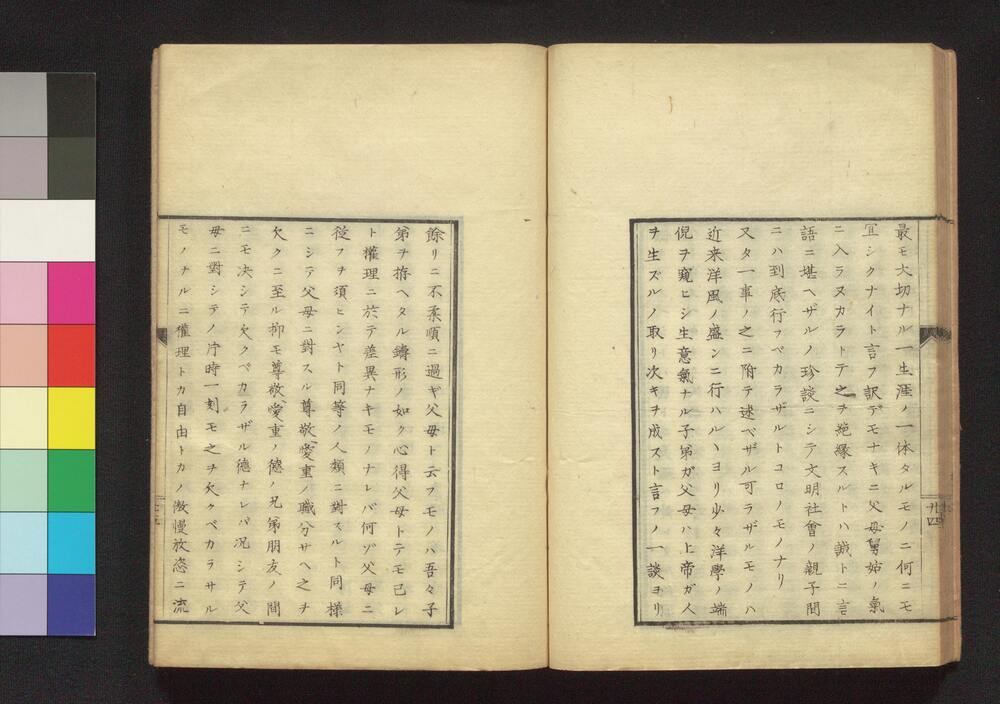 最モ大切ナル一生涯ノ一体タルモノニ何ニモ
冝シクナイト言フ訳デモナキニ父母舅姑ノ氣
ニ入ラヌカラトテ之ヲ絶縁スルトハ誠トニ言
語ニ堪ヘザルノ珍談ニシテ文明社會ノ親子間
ニハ到底行フベカラザルトコロノモノナリ
又タ一事ノ之ニ附テ述ベザル可ラザルモノハ
近来洋風ノ盛ンニ行ハルヽヨリ少々洋學ノ端
倪ヲ窺ヒシ生意氣ナル子弟ガ父母ハ上帝ガ人
ヲ生ズルノ取リ次キヲ成スト言フノ一談ヨリ
廿四
餘リニ不柔順ニ過ギ父母ト云フモノハ吾々子
弟ヲ拵ヘタル鑄形ノ如ク心得父母トテモ己レ
ト權理ニ於テ差異ナキモノナレバ何ゾ父母ニ
從フヲ須ヒンヤト同等ノ人類ニ對スルト同様
ニシテ父母ニ對スル尊敬愛重ノ職分サヘ之ヲ
欠クニ至ル抑モ尊敬愛重ノ德ハ兄弟朋友ノ間
ニモ决シテ欠クベカラザル德ナレバ况シテ父
母ニ對シテノ片時一刻モ之ヲ欠クベカラサル
モノナルニ權理トカ自由トカノ傲慢放恣ニ流